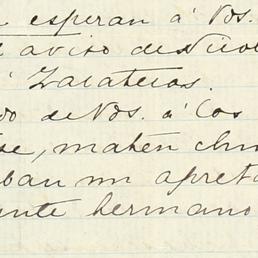 esperan á Vos.
aviso de
á Zacatecas.
do de Vos. á los
se, maten
ban un apreta
ente hermano